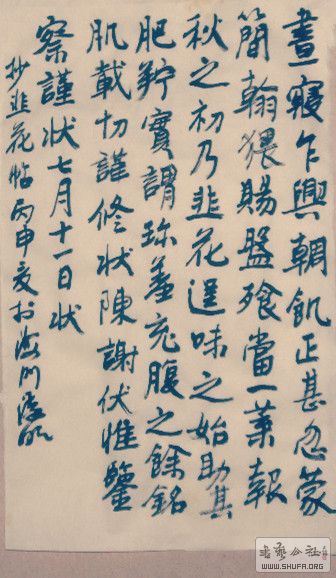 晝寢乍興輖飢正甚忽蒙
簡翰猥賜盤飱當一葉報
秋之初乃韭花逞味之始助其
肥羜實謂珍羞充腹之餘銘
肌載切謹修状陳謝伏惟鑒
察謹状七月十一日状
抄韭花帖丙申夏於海門
书法公社
WWW.SHUFA.ORG